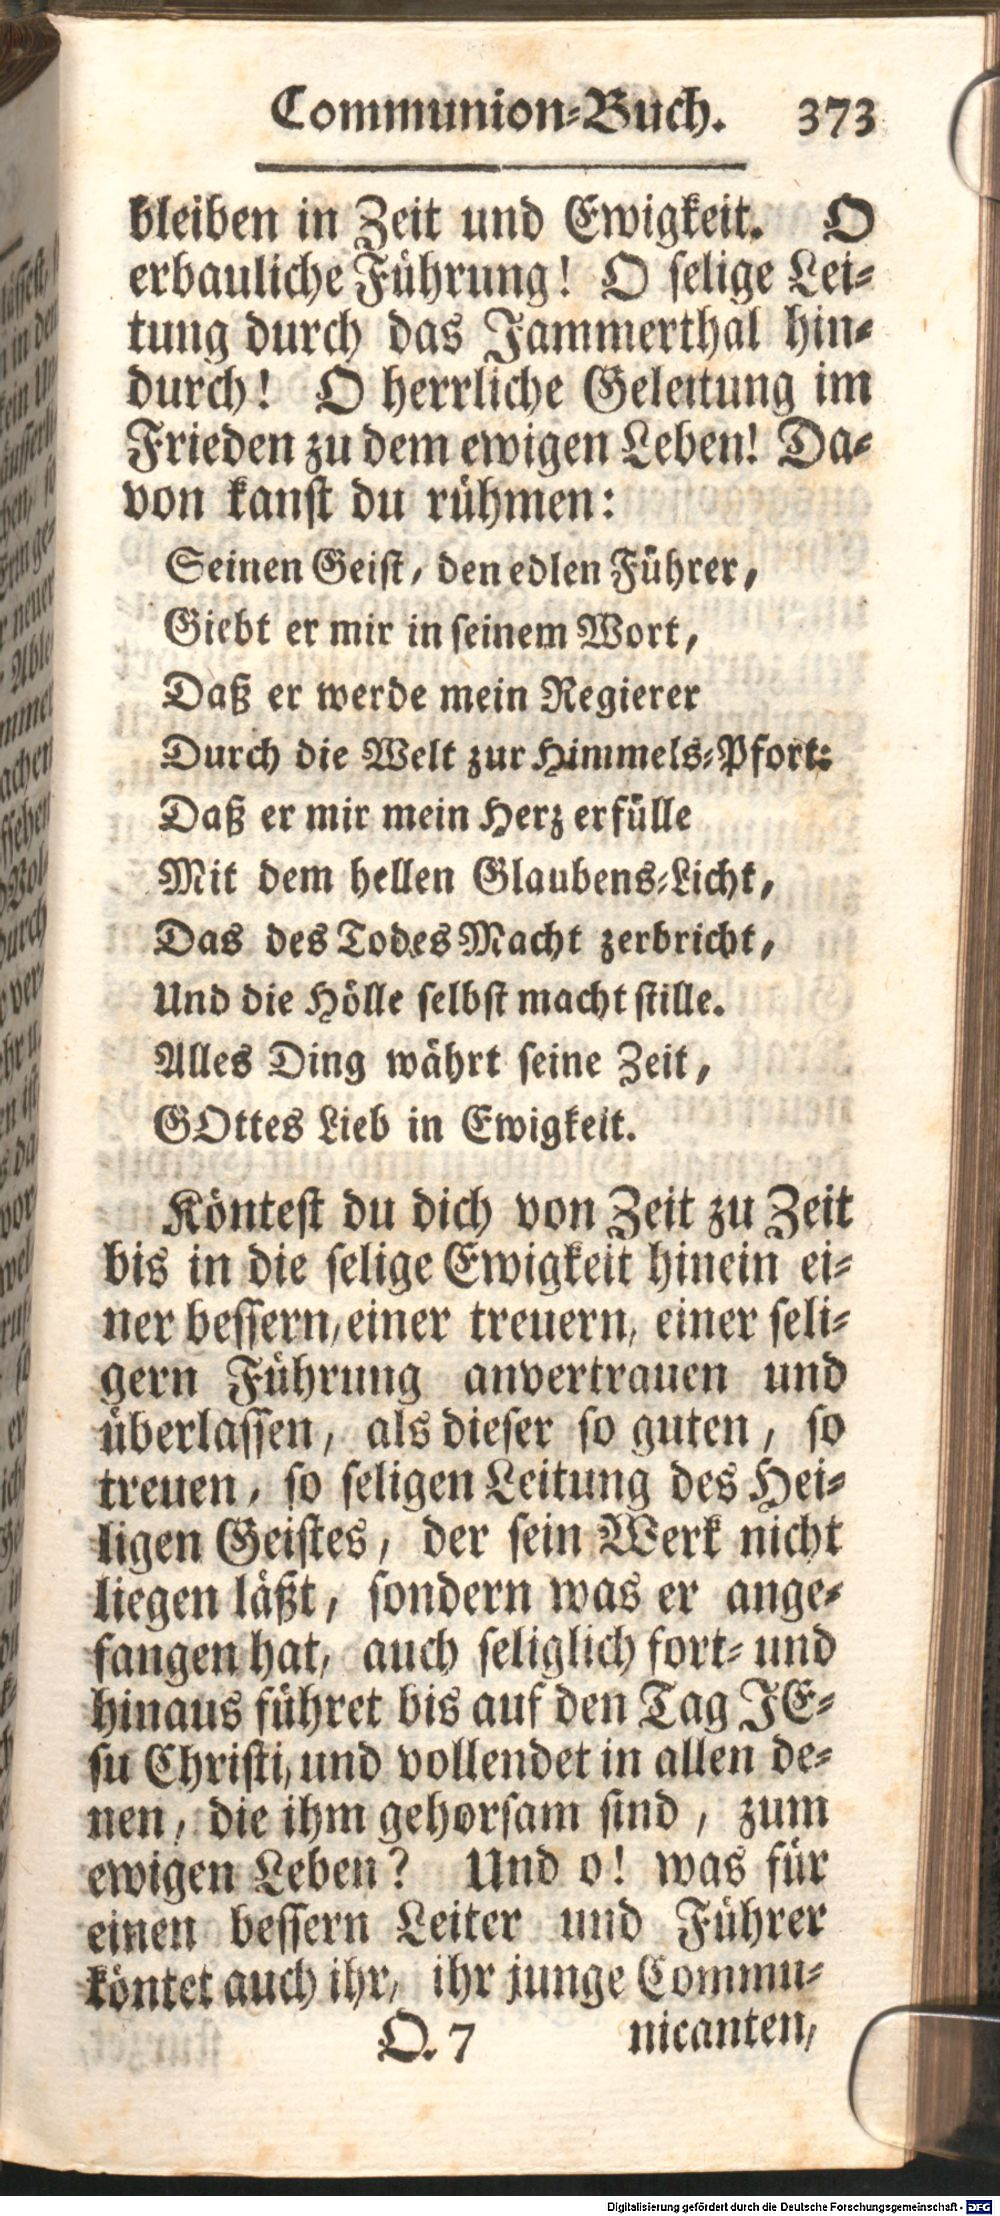 Communion-Buch. 373
bleiben in Zeit und Ewigkeit. O
erbauliche Führung! O selige Lei-
tung durch das Jammerthal hin-
durch! O herrliche Geleitung im
Frieden zu dem ewigen Leben! Da-
von kanst du rühmen:
Seinen Geist, den edlen Führer,
Giebt er mir in seinem Wort,
Daß er werde mein Regierer
Durch die Welt zur Himmels-Pfort:
Daß er mir mein Herz erfülle
Mit dem hellen Glaubens-Licht,
Das des Todes Macht zerbricht,
Und die Hölle selbst macht stille.
Alles Ding währt seine Zeit,
GOttes Lieb in Ewigkeit.
Köntest du dich von Zeit zu Zeit
bis in die selige Ewigkeit hinein ei-
ner bessern, einer treuern, einer seli-
gern Führung anvertrauen und
überlassen, als dieser so guten, so
treuen, so seligen Leitung des Hei-
ligen Geistes, der sein Werk nicht
liegen läßt, sondern was er ange-
fangen hat, auch seliglich fort- und
hinaus führet bis auf den Tag JE-
su Christi, und vollendet in allen de-
nen, die ihm gehorsam sind, zum
ewigen Leben? Und o! was für
einen bessern Leiter und Führer
köntet auch ihr, ihr junge Commu-
Q. 7 nicanten,
Digitalisierung gefördert durch die Deutsche Forschungsgemeinschaft - DFG